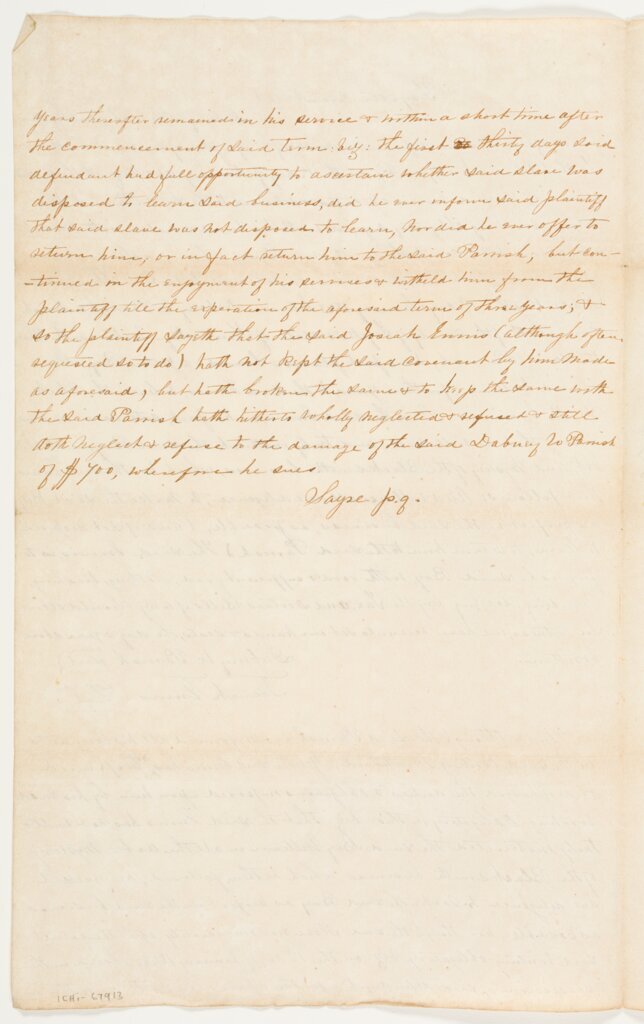 years thereafter remained in his service & within a short time after
the commencement of said term: viz: the first thirty days said
defendant had full opportunity to ascertain whether said slave was
disposed to learn said business, did he ever inform said plaintiff
that said slave was not disposed to learn, Nor did he ever offer to
return him, or in fact return him to the said Parrish, but con-
-tinued on the enjoyment of his services & witheld him from the
plaintiff till the experation of the aforesaid term of three years; &
so the plaintiff sayeth that the said Josiah Ennis (although often
requested so to do) hath not kept the said covenant by him made
as aforesaid, but hath broken the same & to keep the same with
the said Parrish hath hitherto wholly neglected & refused & still
doth neglect & refuse to the damage of the said Dabney W Parrish
of $700, wherefore he sues
Sayre p.q.
ICHi-67913